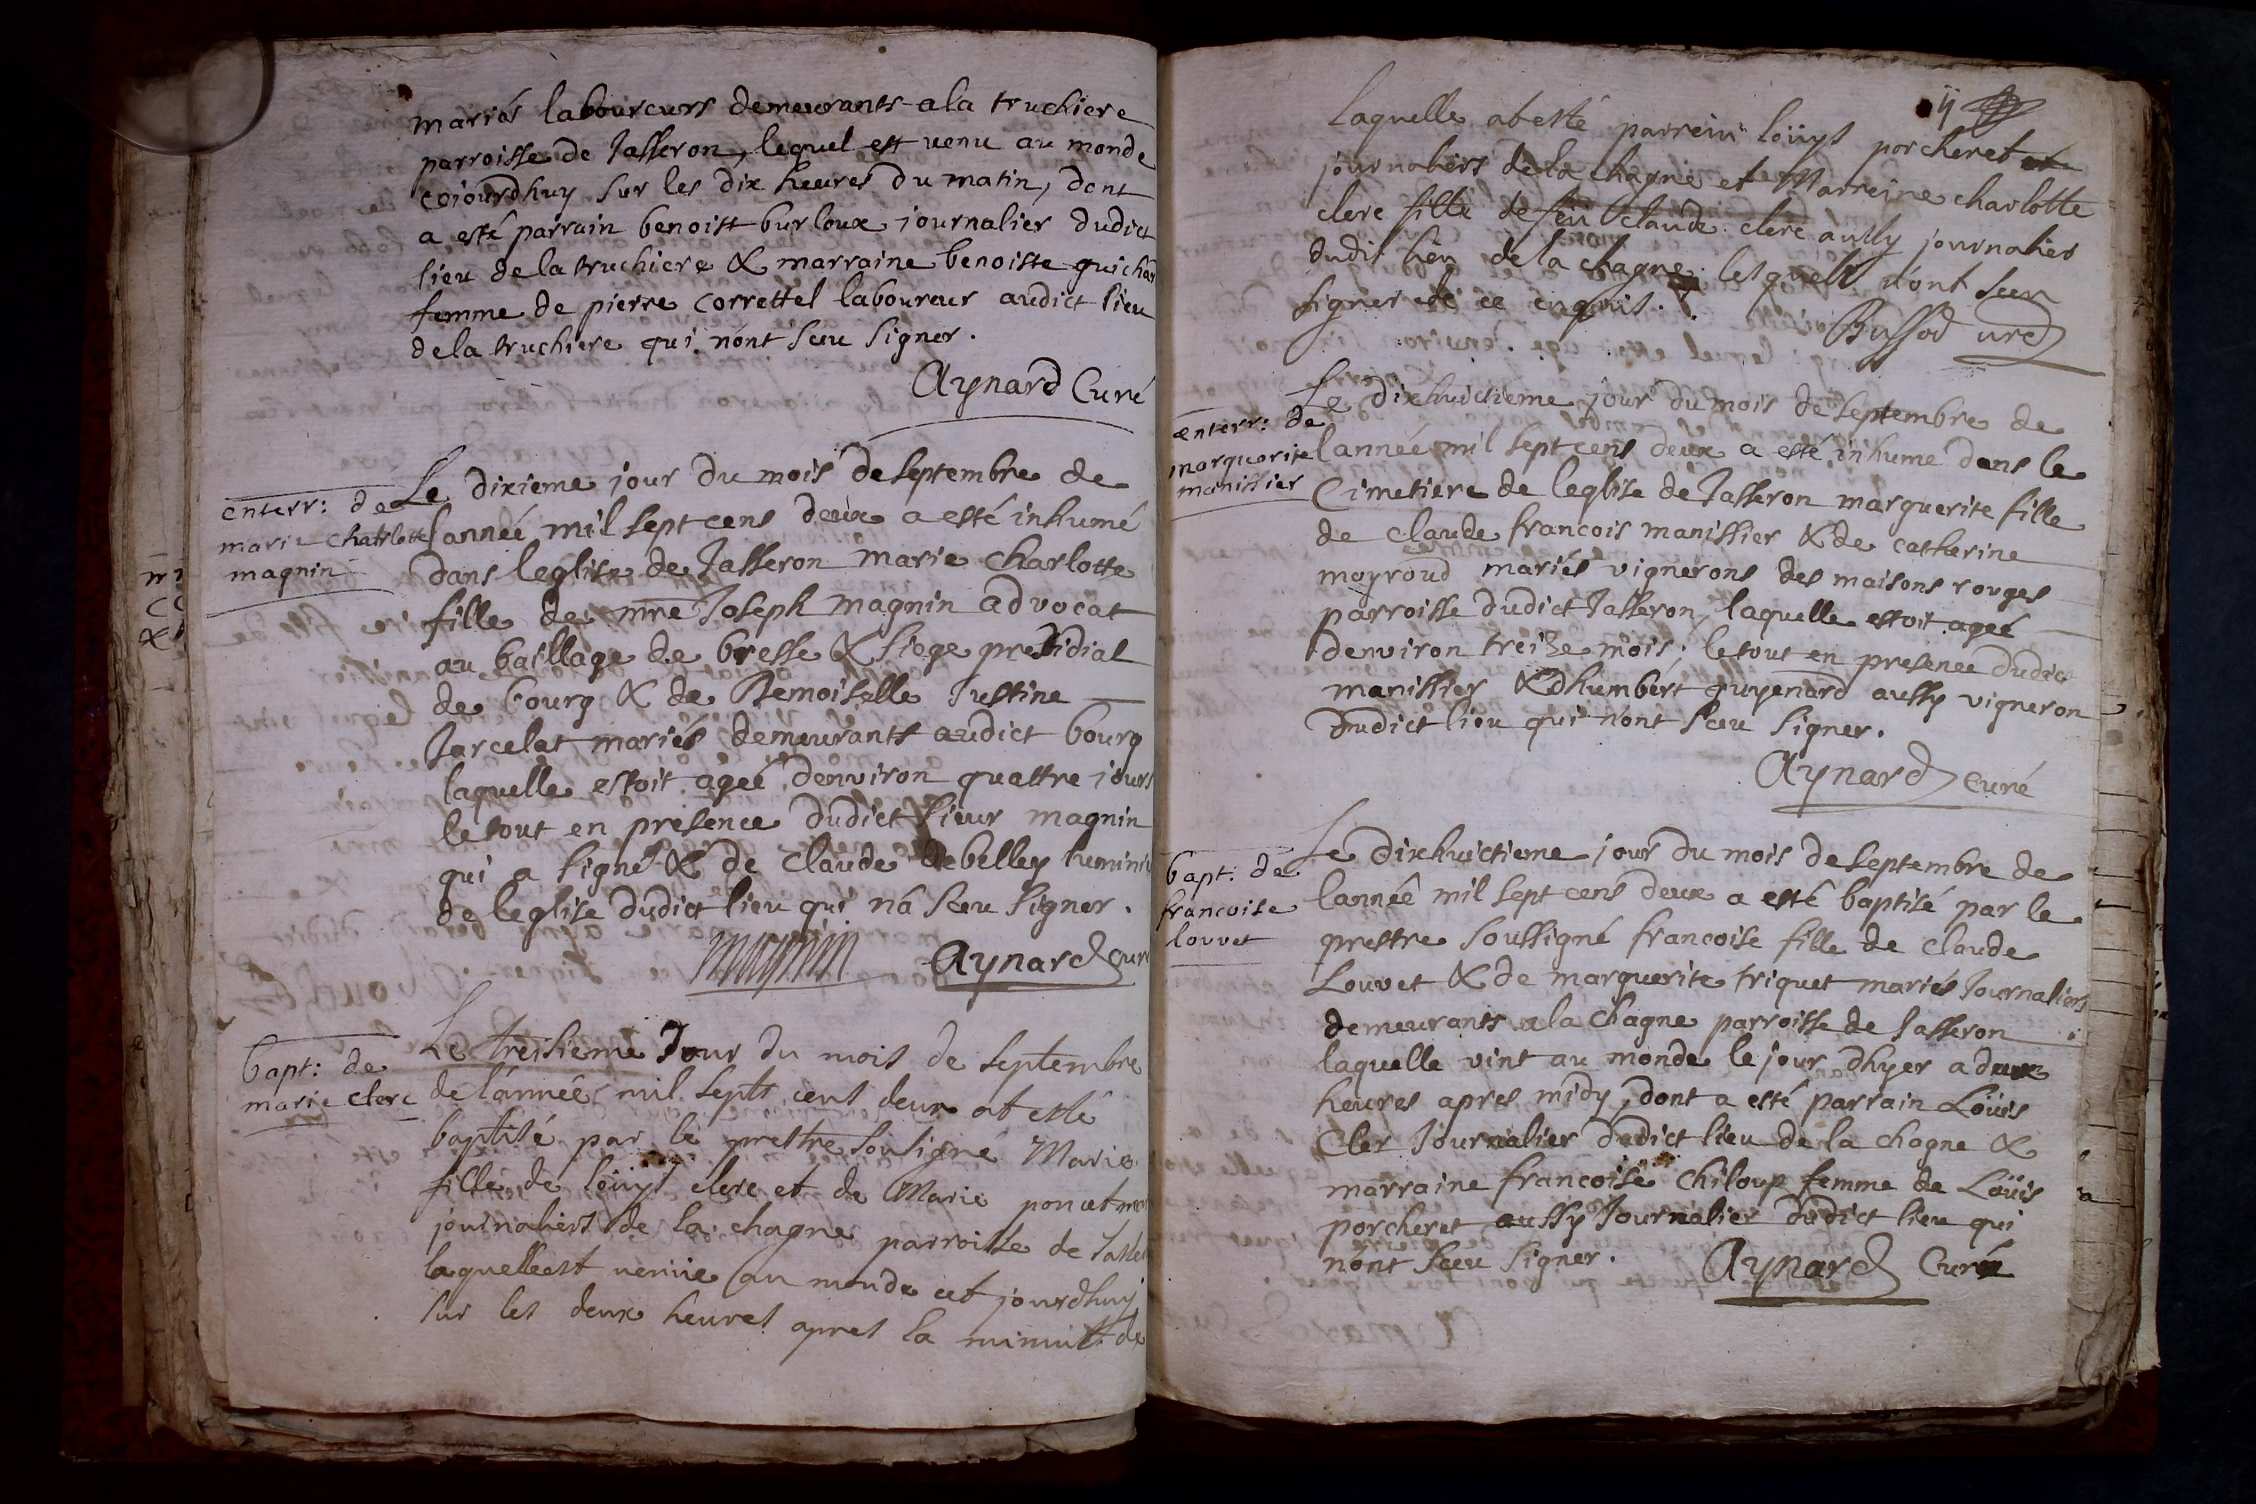 mariés laboureurs demeurants a la truchiere
parroisse de Jasseron, lequel est venu au monde
cejourdhuy sur les dix heures du matin, dont
a esté parrain benoist burloux journalier dudict
lieu de la truchiere & marraine benoiste guichar
femme de pierre correttel laboureur audict lieu
de la truchiere qui n'ont sceu signer.
Aynard Curé
enterr: de
marie charlotte
magnin
Le dixieme jour du mois de septembre de
lannée mil sept cens deux a esté inhumé
dans leglise de Jasseron marie charlotte
fille de mre Joseph magnin advocat
au baillage de bresse & siege presidial
de bourg & de Demoiselle Justine
Jarcelat mariés demeurants audict bourg
laquelle estoit ageé denviron quattre jours
le tout en presence dudict sieur magnin
qui a signé & de claude debelley lumini
de leglise dudict lieu qui n'a sceu signer.
magnin Aynard Curé
bapt: de
marie clerc
Le tresieme Jour du mois de septembre
de l'année mil sept cent deux at esté
baptisé par le prestre sousigné Marie
fille de loüys clerc et de Marie poncet mar
journaliers de la chagne parroisse de Jasse
laquelle est venüe au monde cet jourdhuy
sur les deux heures apres la minuit de
ij
laquelle at esté parrein loüys porcheret et
journaliers de la chagne et Marreine charlotte
clerc fille de feü claude clerc aussy journalier
dudit lieu de la chagne lesquels n'ont sceu
signer de ce enquis.
Buffod uré
enterr: de
marguerite
manissier
Le dixhuictieme jour du mois de septembre de
lannée mil sept cens deux a esté inhume dans le
Cimetiere de leglise de Jasseron marguerite fille
de claude francois manissier & de catherine
moyroud mariés vignerons des maisons rouges
parroisse dudict Jasseron, laquelle estoit ageé
denviron treize mois; le tout en presence dudict
manissier & dhumbért guyenard aussy vigneron
dudict lieu qui n'ont sceu signer.
Aynard curé
bapt: de
francoise
louvet
Le dixhuictieme jour du mois de septembre de
lannée mil sept cens deux a esté baptisé par le
prestre soussigné francoise fille de claude
Louvet & de marguerite triquet mariés Journaliers
demeurants a la chagne parroisse de Jasseron
laquelle vint au monde le jour dhyer a deux
heures apres midy, dont a esté parrain Loüis
Cler Journalier dudict lieu de la chagne &
marraine francoise chiloup femme de Loüis
porcheret aussy Journalier dudict lieu qui
n'ont sceu signer. Aynard Curé